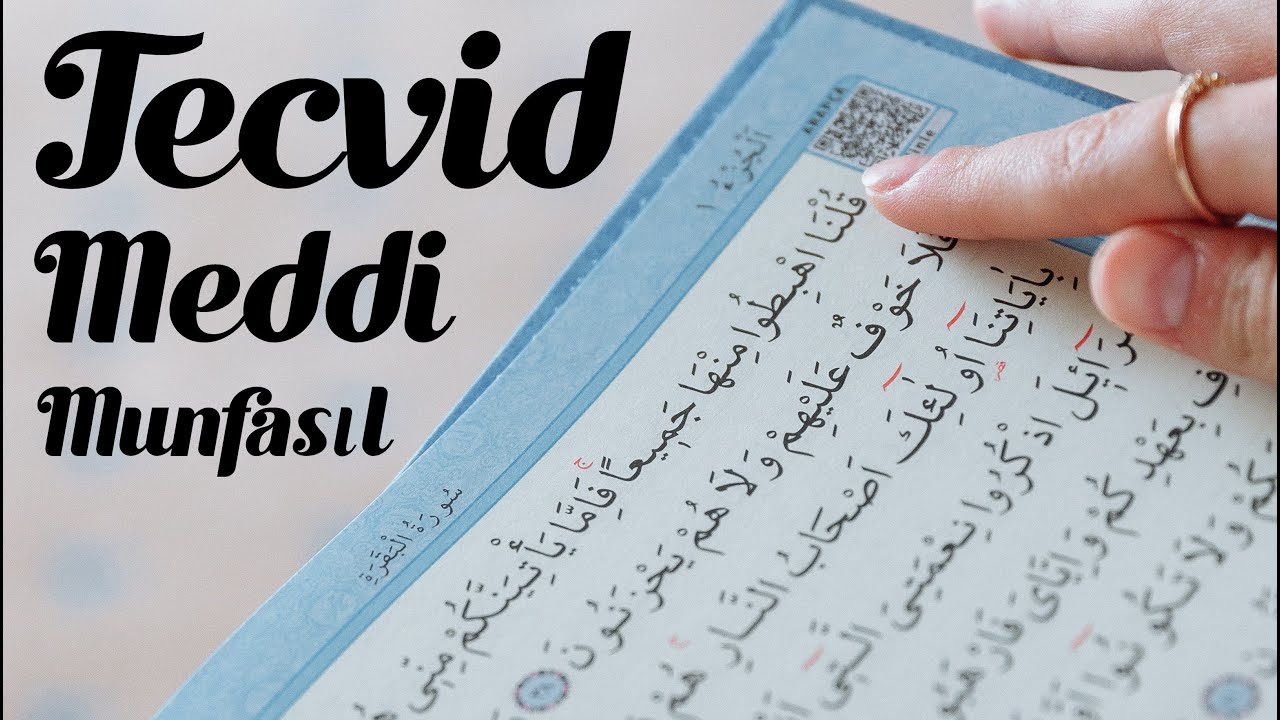 Tecvid
Meddi
Munfasıl
اَلْجُزْءُ ١
سُورَةُ الْبَقَرَةِ
قُلْنَا اهْبِطُوا مِنْهَا جَمِيعاًۚ فَاِمَّا يَأْتِيَنَّكُمْ مِنِّى
فَلَا خَوْفٌ عَلَيْهِمْ وَلَا هُمْ يَحْزَنُونَ
بِاٰيَاتِنَٓا اُولٰٓئِكَ اَصْحَابُ النَّارِۚ هُمْ
اذْكُرُوا نِعْمَتِىَ الَّتِٓى
بِعَهْدِكُمْ وَاِيَّاىَ
وَلَا تَكُونُٓوا